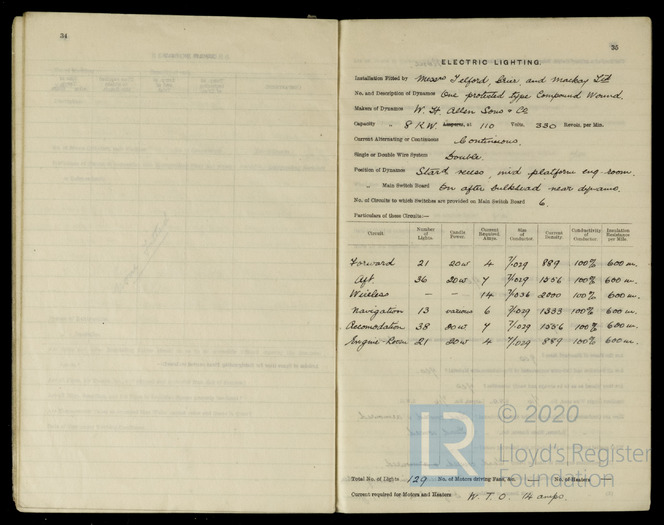 34
35
ELECTRIC LIGHTING.
Installation Fitted by Messrs Telford, Grier, and Mackay Ltd
No. and Description of Dynamos One protected type Compound Wound.
Makers of Dynamos W. H. Allen Sons & Co
Capacity „ 8 K.W. Amperes, at 110 Volts, 330 Revols. per Min.
Current Alternating or Continuous Continuous.
Single or Double Wire System Double.
Position of Dynamos Starb'd recess, mid platform eng-room.
„ Main Switch Board On after bulkhead near dynamo.
No. of Circuits to which Switches are provided on Main Switch Board 6.
Particulars of these Circuits:—
Circuit. Number of Lights. Candle Power. Current Required Amps. Size of Conductor. Current Density. Conductivity of Conductor. Insulation Resistance per Mile.
Forward 21 20w 4 7/.029 889 100% 600 m.
Aft. 36 20w 7 7/.029 1556 100% 600 m.
Wireless — — 14 7/.036 2000 100% 600 m.
Navigation 13 various 6 7/.029 1333 100% 600 m.
Accomodation 38 20w 7 7/.029 1556 100% 600 m.
Engine-Room 21 20w 4 7/.029 889 100% 600 m.
Total No. of Lights 129 No. of Motors driving Fans, &c. — No. of Heaters —
Current required for Motors and Heaters W. T. O. 14 amps.
LR
© 2020
Lloyd's Register
Foundation